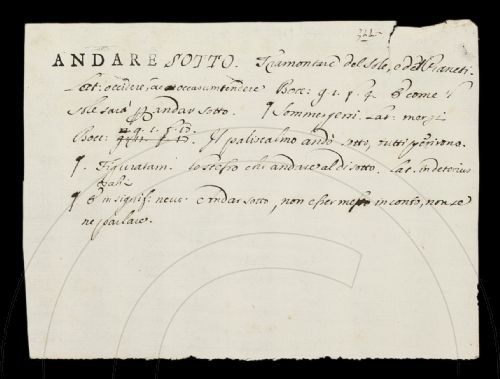 ANDARE SOTTO. Tramontare del Sole, o de Pianeti.
Lat. occidere, ad occasum tendere Bocc. g. 1. f. 9. E come il
Sole sarà p andar sotto. ¶ Sommergersi. Lat. mergi
Bocc. Il paliscalmo andò sotto, tutti perirono.
¶. Figuratam. lo stesso che andare al di sotto. Lat. in deterius
¶ E in signif. neut. andar sotto, non esser messo in conto, non se
ne parlare.